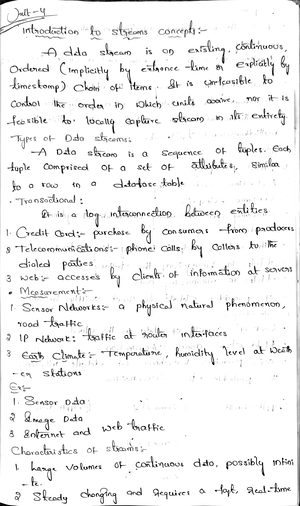 Unit-4
Introduction to streams concepts:-
A data stream is an existing, continuous,
Ordered (implicitly by entrance time or explicitly by
timestamp) Chain of items. It is unfeasible to
Control the order in which units arrive, nor it is
feasible to locally capture stream in its entirety.
Types of Data streams:
-A Data stream is a sequence of tuples. Each
tuple comprised of a set of attributes, similar
to a row in a database table
• Transactional:
It is a log interconnection between entities
1. Credit Card:- purchase by consumers from producers
2 Telecommunications:- phone calls by Callers to the
dialed parties
3 web:- accesses by clients of information at servers
• Measurement:-
1. Sensor Networks:- a physical natural phenomenon,
road traffic
2 IP Network: traffic at router interfaces
3 Earth Climate:- Temperature, humidity level at weath
-er stations
Ex:-
1. Sensor Data
2 Image Data
3 Internet and Web traffic
Characteristics of streams:-
1. Large volumes of continuous data, possibly infini
-te.
2 Steady changing and requires a fast, real-time